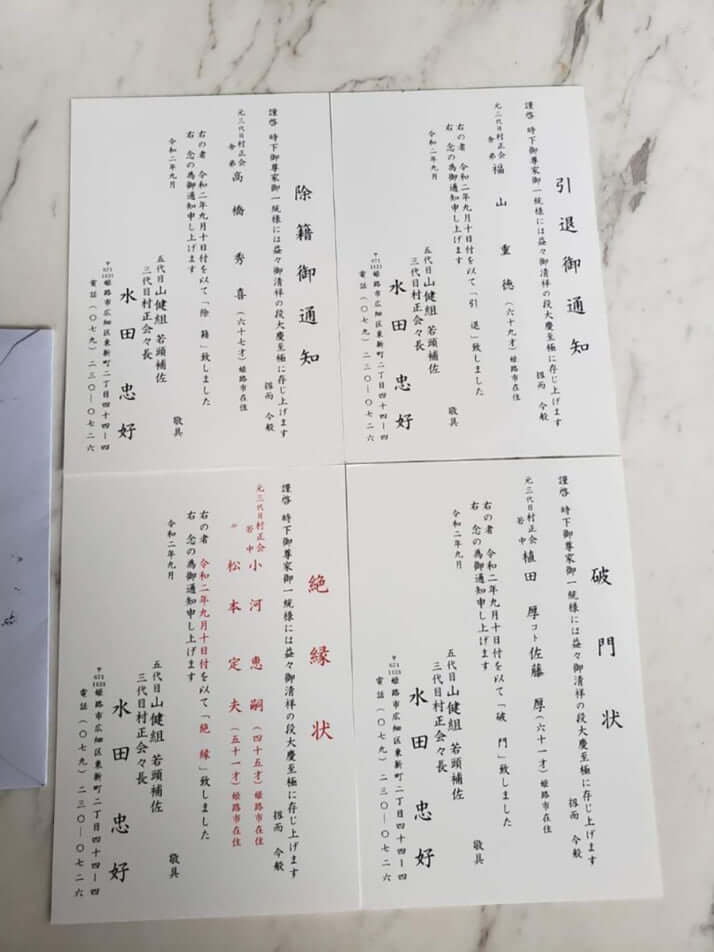 引退御通知
謹啓 時下御尊家御一統様には益々御清祥の段大慶至極に存じ上げます
擬而 今般
元三代目村正会
舎弟 福山重徳(六十九才)姫路市在住
右の者 令和二年九月十日付を以て「引退」致しました
右 念の為御通知申し上げます
敬具
令和二年九月
五代目山健組 若頭補佐
三代目村正会々長
水田忠好
〒671
1151 姫路市広畑区東新町二丁目四十四ー四
電話(〇七九)二三〇ー〇七二六
除籍御通知
謹啓 時下御尊家御一統様には益々御清祥の段大慶至極に存じ上げます
擬而 今般
元三代目村正会
舎弟 高橋秀喜(六十七才)姫路市在住
右の者 令和二年九月十日付を以て「除籍」致しました
右 念の為御通知申し上げます
敬具
令和二年九月
五代目山健組 若頭補佐
三代目村正会々長
水田忠好
〒671
1151 姫路市広畑区東新町二丁目四十四ー四
電話(〇七九)二三〇ー〇七二六
破門状
謹啓 時下御尊家御一統様には益々御清祥の段大慶至極に存じ上げます
擬而 今般
元三代目村正会
若中 植田厚コト佐藤厚(六十一才)姫路市在住
右の者 令和二年九月十日付を以て「破門」致しました
右 念の為御通知申し上げます
敬具
令和二年九月
五代目山健組 若頭補佐
三代目村正会々長
水田忠好
〒671
1151 姫路市広畑区東新町二丁目四十四ー四
電話(〇七九)二三〇ー〇七二六
絶縁状
謹啓 時下御尊家御一統様には益々御清祥の段大慶至極に存じ上げます
擬而 今般
元三代目村正会
若中 小河恵嗣(四十五才)姫路市在住
〃 松本定夫(五十一才)姫路市在住
右の者 令和二年九月十日付を以て「絶縁」致しました
右 念の為御通知申し上げます
敬具
令和二年九月
五代目山健組 若頭補佐
三代目村正会々長
水田忠好
〒671
1151 姫路市広畑区東新町二丁目四十四ー四
電話(〇七九)二三〇ー〇七二六